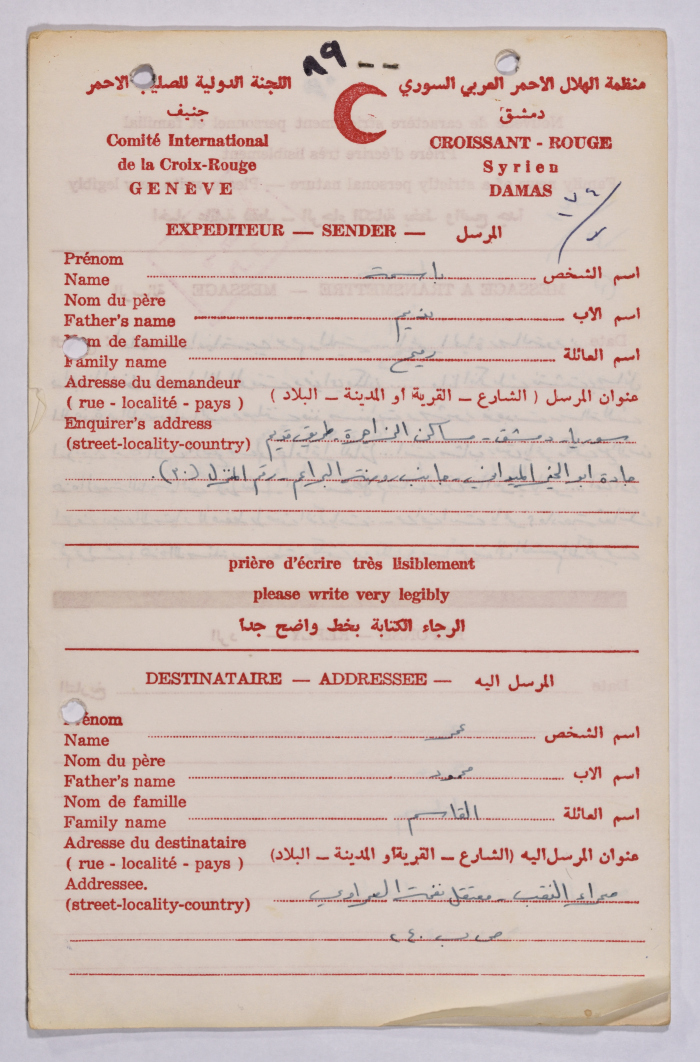 ٨٩ --
اللجنة الدولية للصليب الاحمر
جنيف
Comité International
de la Croix-Rouge
GENÈVE
منظمة الهلال الاحمر العربي السوري
دمشق
CROISSANT - ROUGE
Syrien
DAMAS
EXPEDITEUR — SENDER — المرسل
Prénom
Name باسمة اسم الشخص
Nom du père
Father's name نديم اسم الاب
Nom de famille
Family name اسم العائلة
Adresse du demandeur
( rue - localité - pays ) عنوان المرسل ( الشارع – القرية أو المدينة – البلاد )
Enquirer's address
(street-locality-country) سوريا - دمشق - مساكن الزاهرة - طريق قديم
جادة ابو الخير الميداني - جانب روضة البراعم - رقم المنزل (٢٠).
prière d'écrire très lisiblement
please write very legibly
الرجاء الكتابة بخط واضح جدا
DESTINATAIRE — ADDRESSEE — المرسل اليه
Prénom
Name عمر اسم الشخص
Nom du père
Father's name محمود اسم الاب
Nom de famille
Family name القاسم اسم العائلة
Adresse du destinataire
( rue - localité - pays ) عنوان المرسل اليه (الشارع – القرية أو المدينة – البلاد)
Addressee.
(street-locality-country) صحراء النقب - معتقل نفحة الصحراوي
ص ب ٢٤٠